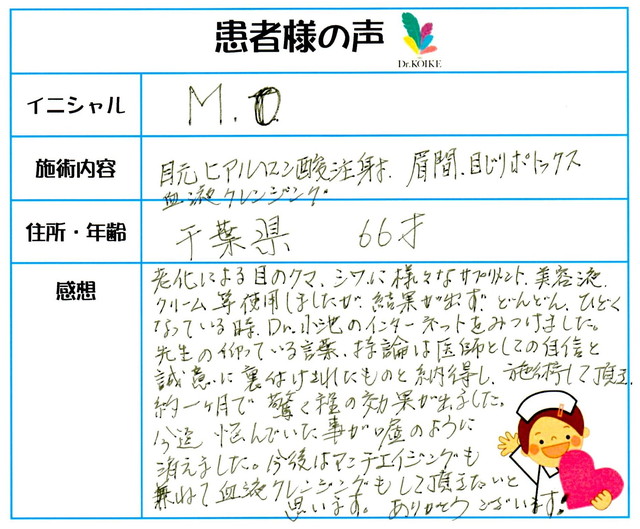 患者様の声
Dr.KOIKE
イニシャル
M.O.
施術内容
目元ヒアルロン酸注射、眉間、目じりボトックス
血液クレンジング
住所・年齢
千葉県 66才
感想
老化による目のクマ、シワに様々なサプリメント、美容液
クリーム等使用しましたが、結果が出ず、どんどん、ひどく
なっている時、Dr.小池のインターネットをみつけました。
先生の仰っている言葉、持論は医師としての自信と
誠意に裏付けされたものと納得し、施術して頂き
約一ヶ月で驚く程の効果が出ました。
今迄悩んでいた事が嘘のように
消えました。今後はアンチエイジングも
兼ねて血液クレンジングもして頂きたいと
思います。ありがとうございます!